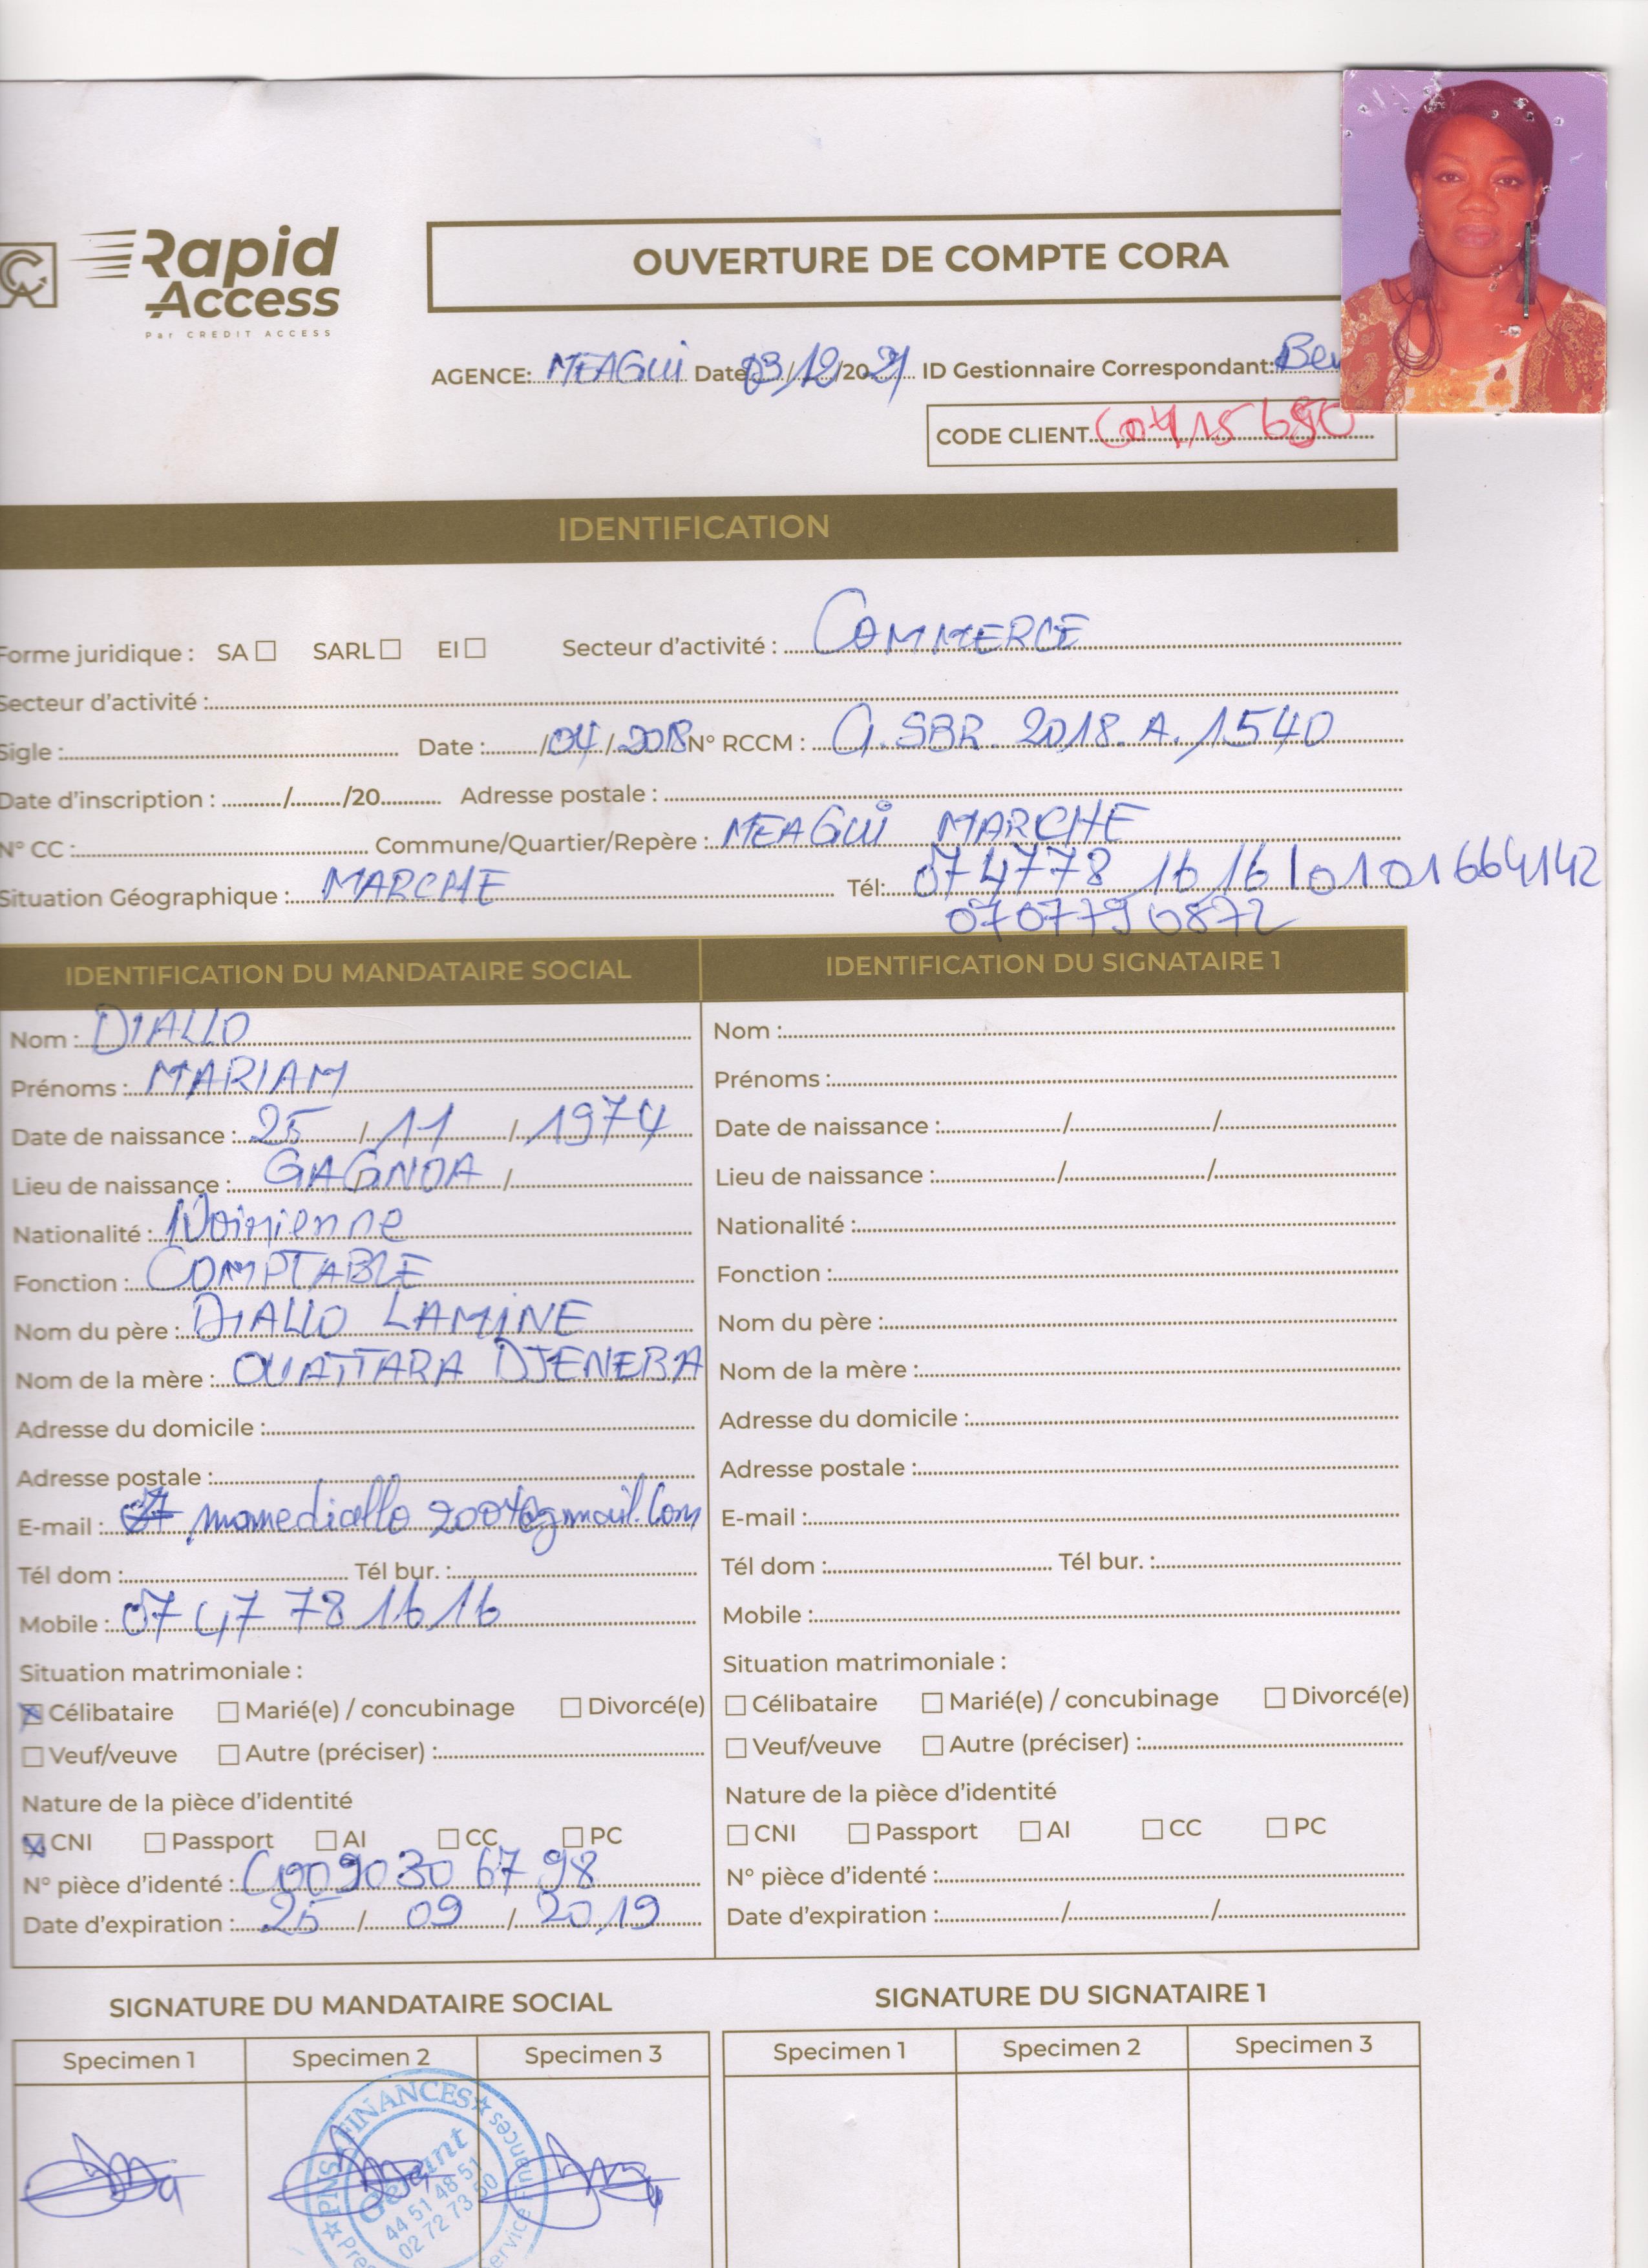 Rapid
Access
Par CREDIT ACCESS
OUVERTURE DE COMPTE CORA
AGENCE: MEAGUI Date 03/12/2021 ID Gestionnaire Correspondant:
CODE CLIENT
IDENTIFICATION
Forme juridique : SA SARL EI Secteur d'activité : COMMERCE
Secteur d'activité :
Sigle : Date : /04/2018 N° RCCM : SBR. 2018. A. 1540
Date d'inscription : / /20 Adresse postale :
N° CC : Commune/Quartier/Repère : MEAGUI MARCHE
Situation Géographique : MARCHE Tél: 074778 16 16 / 0101664142
0707790872
IDENTIFICATION DU MANDATAIRE SOCIAL
Nom : DIALLO
Prénoms : MARIAM
Date de naissance : 25 / 11 / 1974
Lieu de naissance : GAGNOA /
Nationalité : Ivoirienne
Fonction : COMPTABLE
Nom du père : DIALLO LAMINE
Nom de la mère : OUATTARA DJENEBA
Adresse du domicile :
Adresse postale :
E-mail :
Tél dom : Tél bur. :
Mobile : 07 47 78 16 16
Situation matrimoniale :
Célibataire Marié(e) / concubinage Divorcé(e)
Veuf/veuve Autre (préciser) :
Nature de la pièce d'identité
CNI Passport AI CC PC
N° pièce d'identé : C009030 67 98
Date d'expiration : 25 / 09 / 2019
IDENTIFICATION DU SIGNATAIRE 1
Nom :
Prénoms :
Date de naissance : / /
Lieu de naissance : / /
Nationalité :
Fonction :
Nom du père :
Nom de la mère :
Adresse du domicile :
Adresse postale :
E-mail :
Tél dom : Tél bur. :
Mobile :
Situation matrimoniale :
Célibataire Marié(e) / concubinage Divorcé(e)
Veuf/veuve Autre (préciser) :
Nature de la pièce d'identité
CNI Passport AI CC PC
N° pièce d'identé :
Date d'expiration : / /
SIGNATURE DU MANDATAIRE SOCIAL
Specimen 1 Specimen 2 Specimen 3
PNS FINANCES
Gérant
44 51 48 51
02 72 73 50
SIGNATURE DU SIGNATAIRE 1
Specimen 1 Specimen 2 Specimen 3